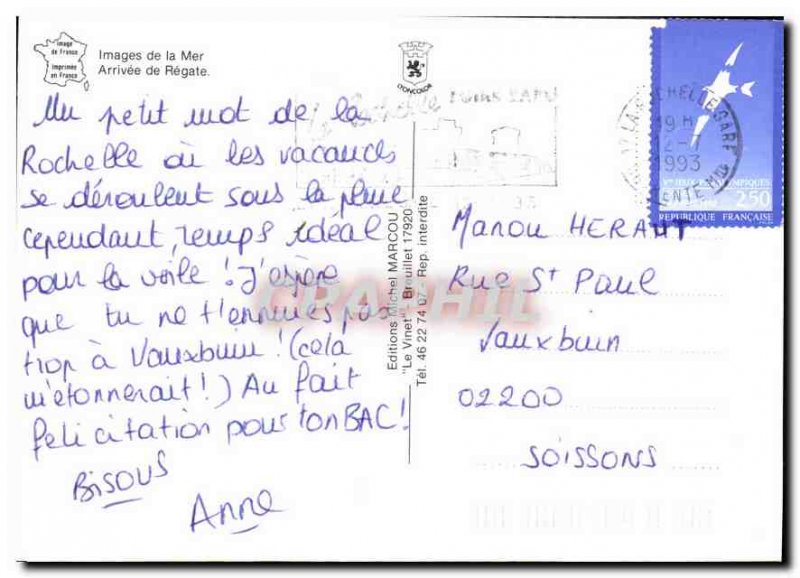 Image
de France
Imprimée
en France
Images de la Mer
Arrivée de Régate.
CIONCOLOR
Un petit mot de la
Rochelle où les vacances
se déroulent sous la pluie
cependant, temps idéal
pour la voile ! J'espère
que tu ne t'ennuies pas
trop à Vauxbuin ! (cela
m'etonnerait !) Au fait
felicitation pour ton BAC !
Bisous
Anne
Editions Michel MARCOU
"Le Vinet" Breuillet 17920
Tél. 46 22 74 07 - Rep. interdite
LA ROCHELLE GARE
19 H
1993
250
REPUBLIQUE FRANÇAISE
Manou HERANT
Rue St Paul
Vauxbuin
02200
SOISSONS
CPAPHIL